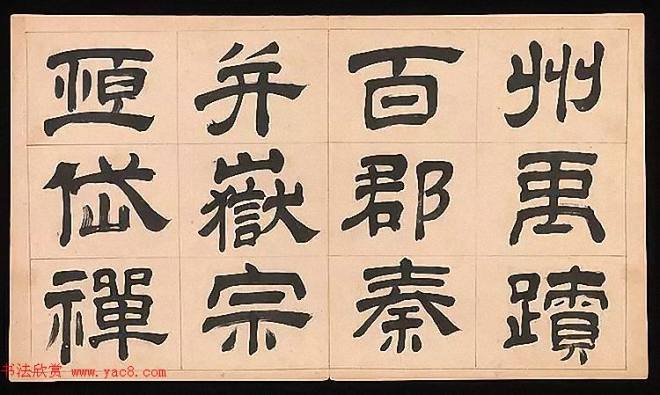 州禹蹟
百郡秦
并嶽宗
恆岱禪
书法欣赏 www.yac8.com